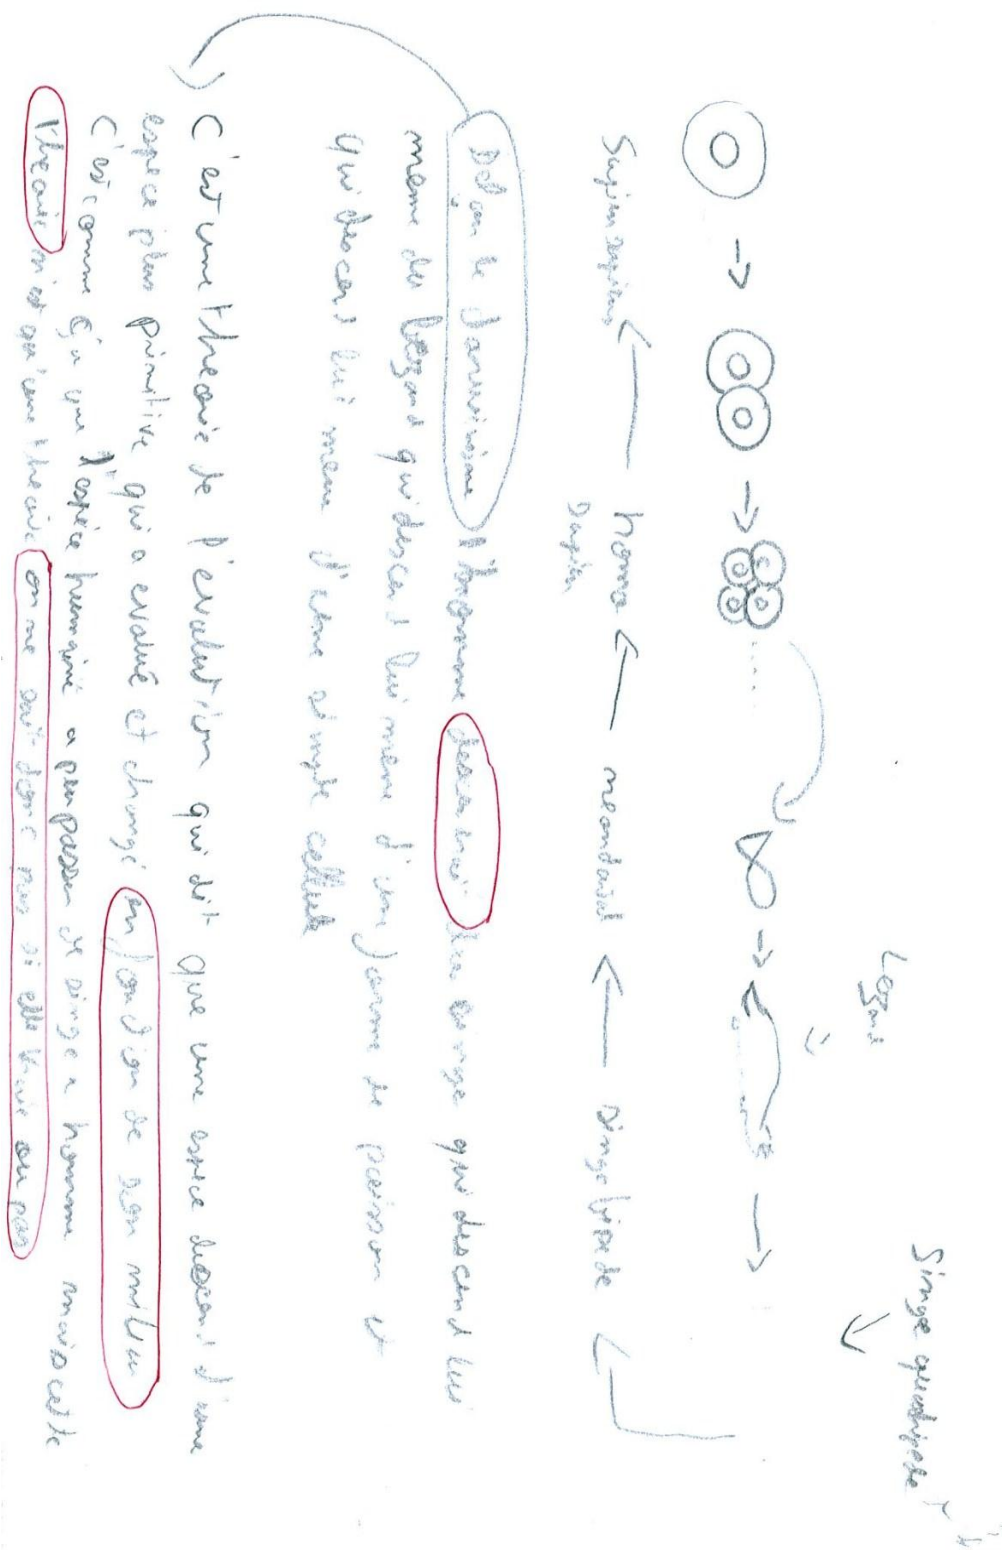 Singe quadripède
Lezard
Singe bipede
neandertal
homo
sapien
Sapien sapiens
Selon le darwinisme l'homme descendrai des singe qui descend lui
meme des lezard qui descend lui meme d'un forme de poisson et
qui descend lui meme d'une simple cellule
C'est une theorie de l'evolution qui dit que une espece descend d'une
espece plus primitive qui a evolué et changé en fonction de son milieu
C'est comme ça que l'espèce humaine a pu passer de singe a homme mais cette
theorie n'est qu'une theorie on ne sait donc pas si elle vraie ou pas